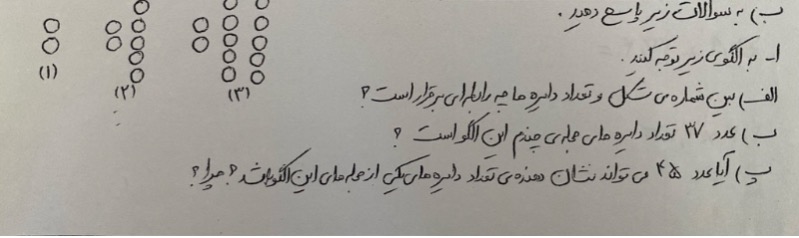 ب) به سوالات زیر پاسخ دهید.
۱- به الگوی زیر توجه کنید.
(۱) (۲) (۳)
الف) بین شماره ی شکل و تعداد دایره ها چه رابطه ای برقرار است؟
ب) عدد ۳۷ تعداد دایره های جمله ی چندم این الگو است؟
پ) آیا عدد ۴۵ می تواند نشان دهنده ی تعداد دایره های یکی از جمله های این الگو باشد؟ چرا؟